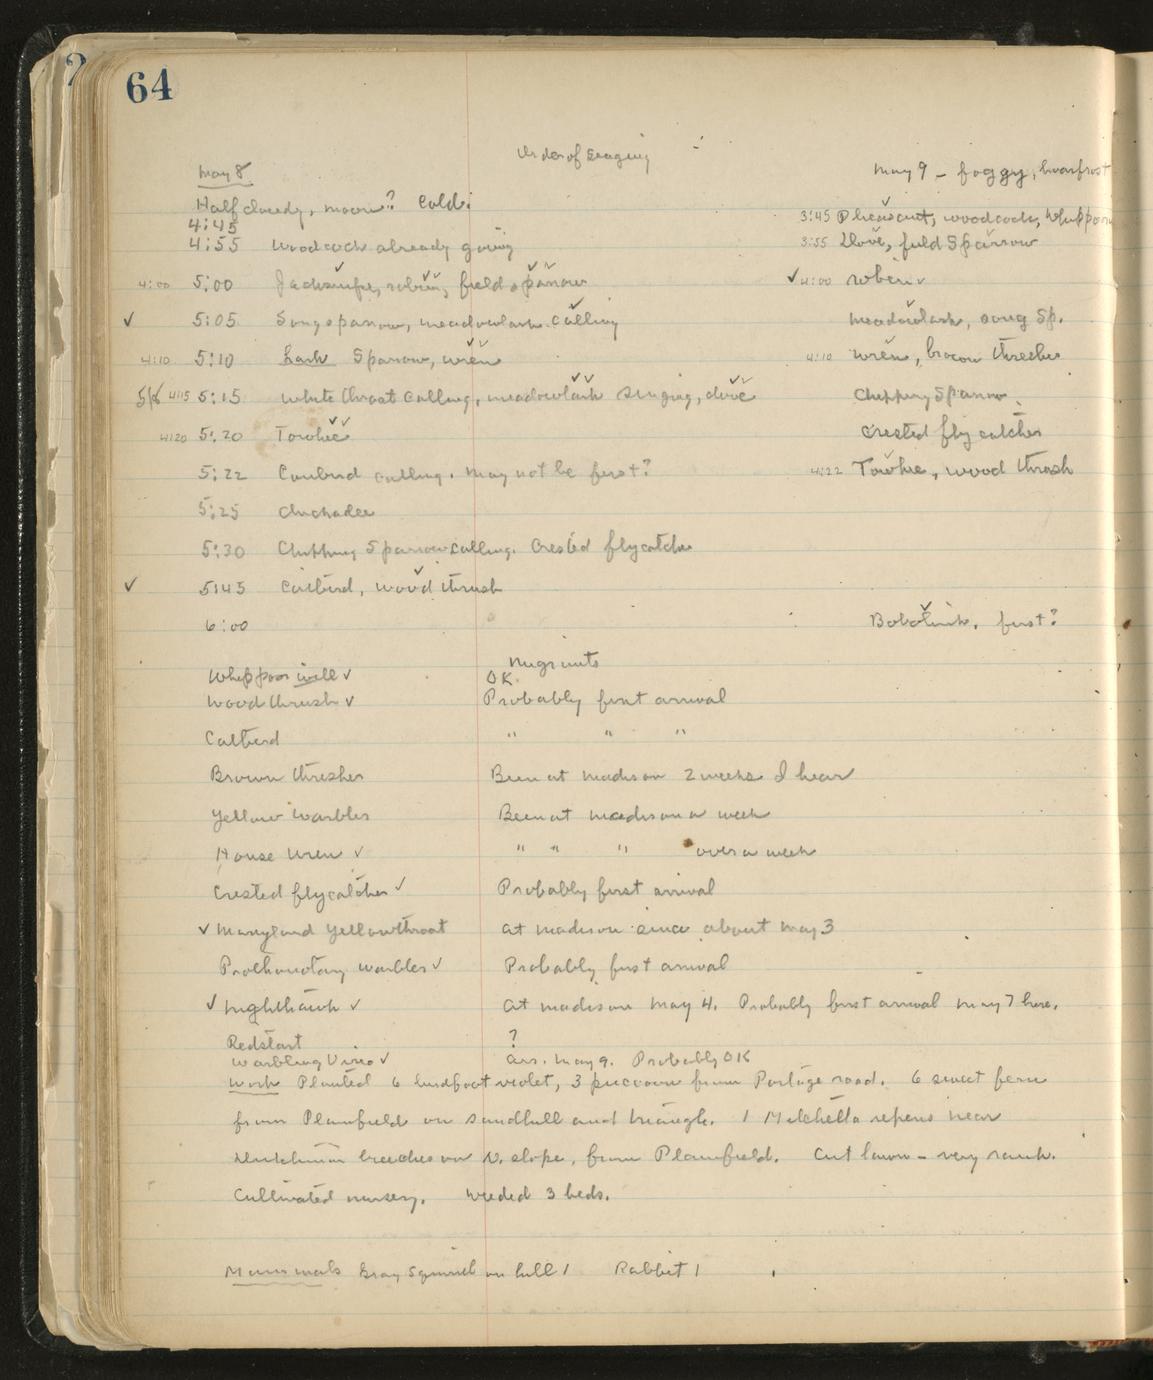 64
Order of Singing
May 8
May 9 - foggy, hoarfrost
Half cloudy, moon? Cold.
4:45
3:45 Pheasant, woodcock, Whippoor
4:55 Woodcock already going
3:55 Dove, field Sparrow
4:00 5:00 Jacksnipe, robin, field sparrow
✓ 4:00 robin ✓
✓ 5:05 Song sparrow, meadowlark calling
meadowlark, song Sp.
4:10 5:10 Lark Sparrow, wren
4:10 wren, brown thresher
4:15 5:15 White throat calling, meadowlark singing, dove
Chipping Sparrow
4:20 5:20 Towhee
Crested fly catcher
5:22 Cowbird calling. May not be first?
4:22 Towhee, wood thrush
5:25 Chickadee
5:30 Chipping Sparrow calling. Crested flycatcher
✓ 5:45 Catbird, wood thrush
6:00
Bobolink, first?
Migrants
Whippoor will ✓ OK
Wood thrush ✓ Probably first arrival
Catbird " " "
Brown thresher Been at Madison 2 weeks I hear
Yellow Warbler Been at Madison a week
House Wren ✓ " " " over a week
Crested flycatcher ✓ Probably first arrival
✓ Maryland Yellowthroat at Madison since about May 3
Prothonotary warbler ✓ Probably first arrival
✓ Nighthawk ✓ at Madison May 4. Probably first arrival May 7 here.
Redstart ?
Warbling Vireo ✓ arr. May 9. Probably OK
Work Planted 6 birdfoot violet, 3 puccoon from Portage road. 6 sweet fern
from Plainfield on sandhill and triangle. 1 Mitchella repens near
Dutchman breeches on N. slope, from Plainfield. Cut lawn - very rank.
Cultivated nursery. Weeded 3 beds.
Mammals Gray Squirrel on hill 1 Rabbit 1